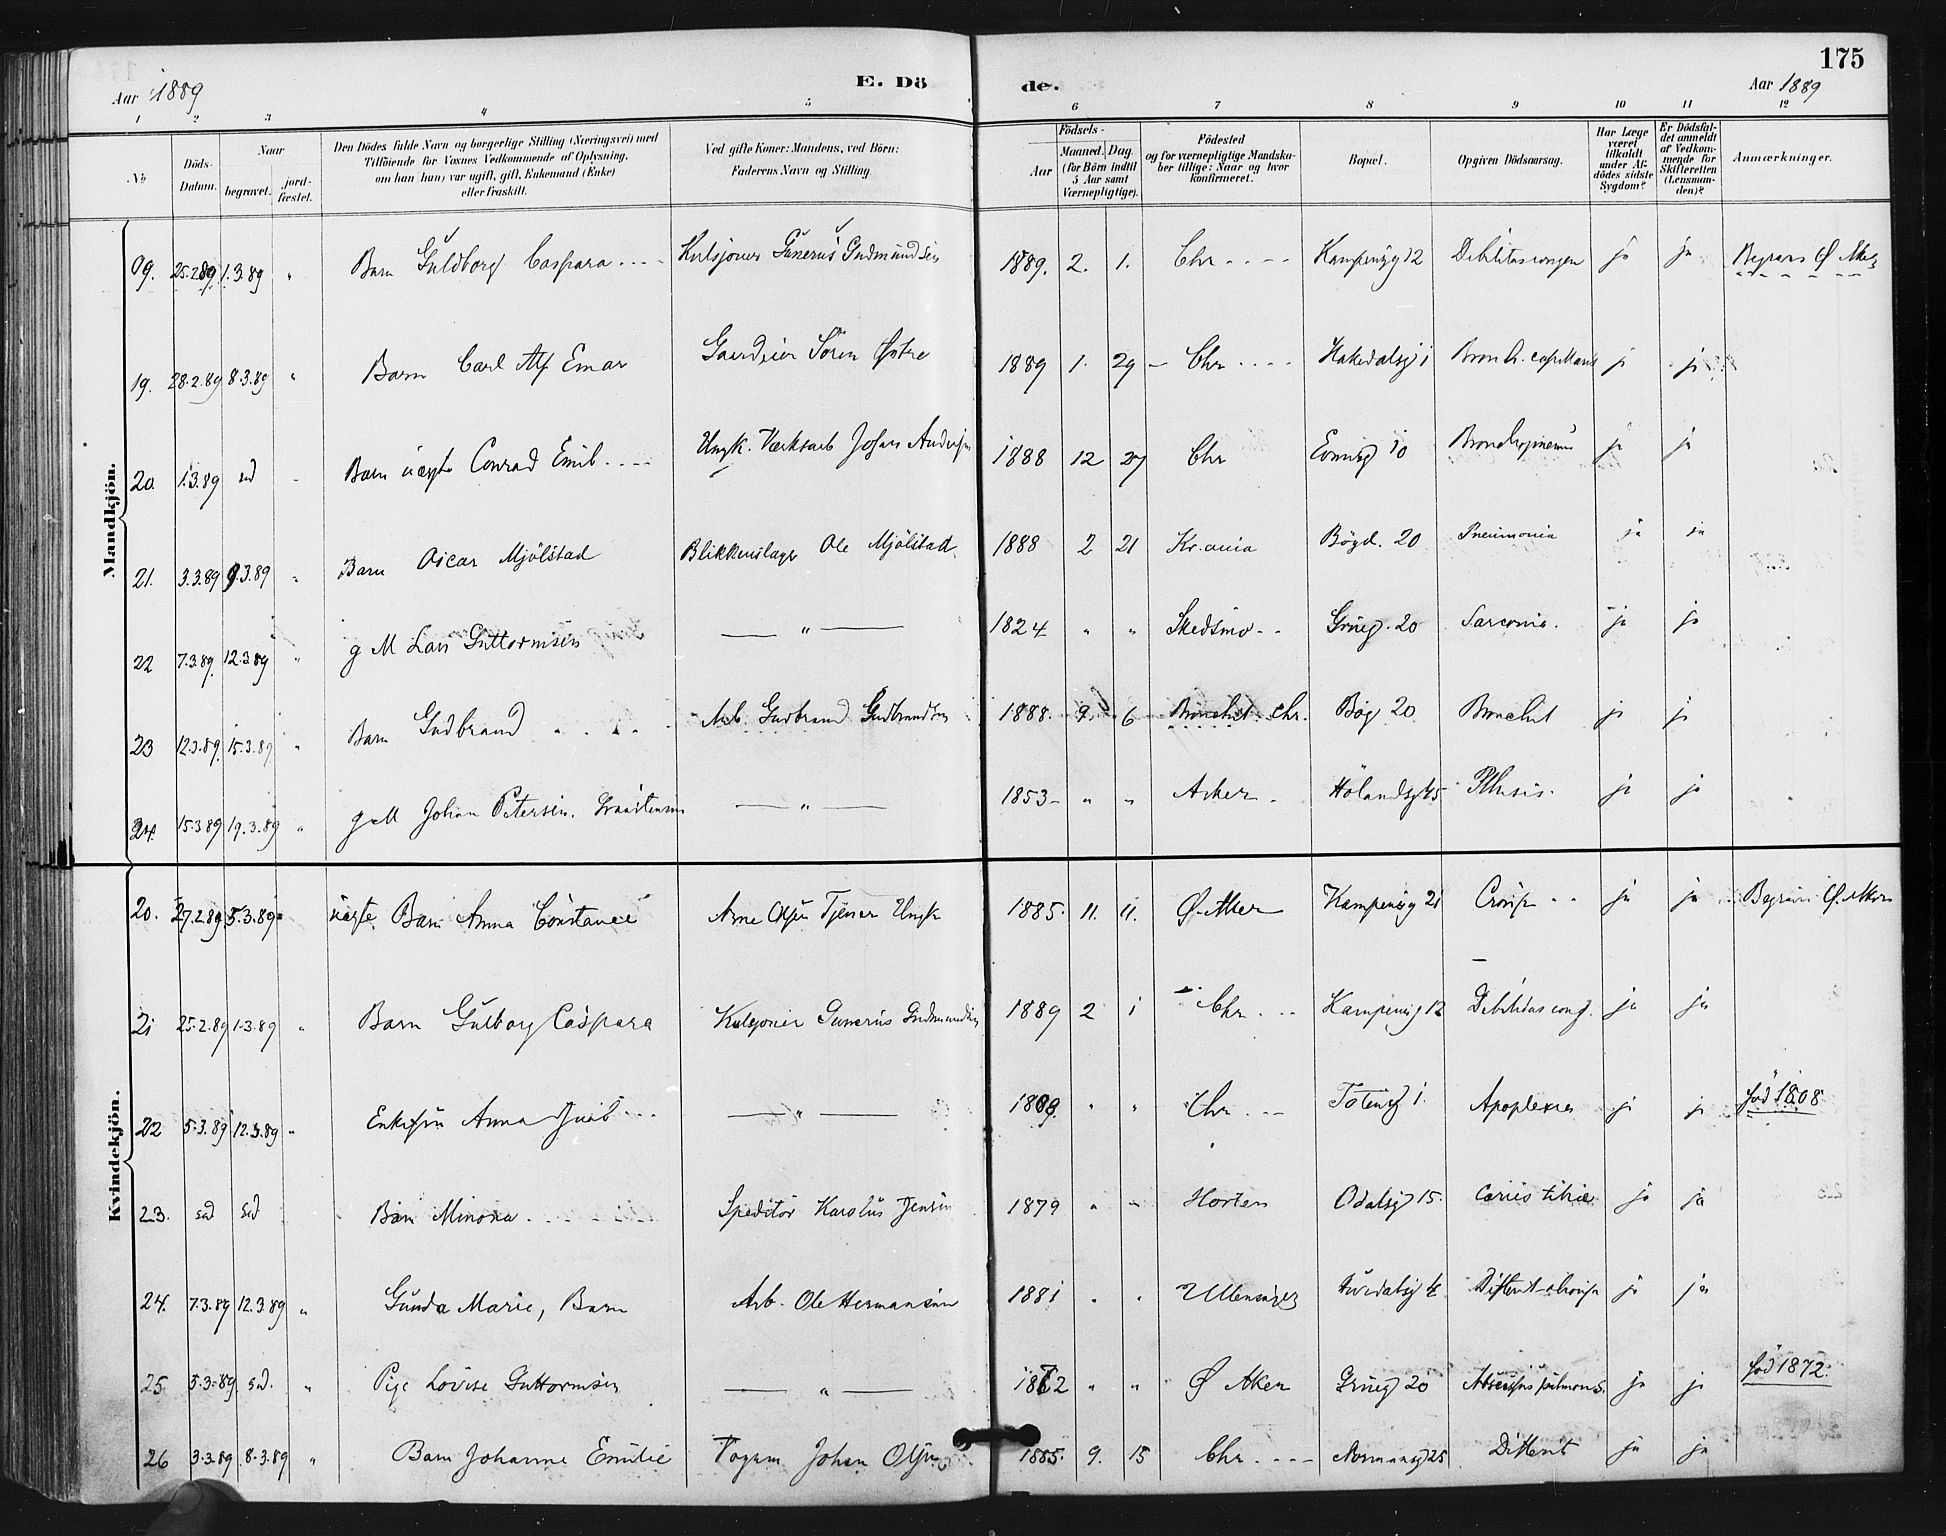 175
Aar 1889
E. Dö
de.
Aar 1889
1 2 3 4 5 6 7 8 9 10 11 12
No
Döds-
Datum.
Naar
begravet.
jord-
fæstet.
Den Dödes fulde Navn og borgerlige Stilling (Næringsvei) med
Tilföiende for Voxnes Vedkommende af Oplysning,
om han (hun) var ugift, gift, Enkemand (Enke)
eller fraskilt.
Ved gifte Koner: Mandens, ved Börn:
Faderens Navn og Stilling
Födsels-
Aar
Maaned. Dag.
(for Börn indtil
5 Aar samt
Værnepligtige).
Födested
og for værnepligtige Mandska-
ber tillige: Naar og hvor
konfirmeret.
Bopæl.
Opgiven Dödsaarsag.
Har Læge
været
tilkaldt
under Af-
dödes sidste
Sygdom?
Er Dödsfal-
det anmeldt
af Vedkom-
mende for
Skifteretten
(Lensman-
den)?
Anmærkninger.
Mandkjön.
09. 25.2.89 1.3.89 " Barn Guldborg Caspara Gunerius Gudmundsen 1889. 2. 1. Chr Kampensg 12 Debilitas congen ja ja Begraves Ø Aker
19. 28.2.89 8.3.89 " Barn Carl Alf Emar Sören Østre 1889 1. 29 Chr Hakedalsg 1 Bronch. capillaris ja ja
20 1.3.89 sd Barn uægte Conrad Emil Ungk. Værksarb Johan Andersen 1888 12 27 Chr 10 Bronchopneumi ja ja
21. 3.3.89 9.3.89 " Barn Oscar Mjölstad Blikkenslager Ole Mjölstad 1888 2 21 Kr.ania Bögd. 20 Pneumonia ja ja
22 7.3.89. 12.3.89 " g M Lars Guttormsen — " — 1824 " " Skedsmo Grüg. 20 Sarcoma. ja ja
23 12.3.89. 15.3.89 " Barn Gudbrand Arb. Gudbrand Gudbrandsen 1888. 9. 6 Bronchit. Chr. Bög 20 Bronchit ja ja
24. 15.3.89 19.3.89 " g M Johan Petersen — " — 1853 " " Aker Hölandsg 45 Phthisis. ja ja
Kvindekjön.
20. 27.2.89 5.3.89 " uægte Barn Anna Constance Arne Olsen Tjener Ungk 1885. 11. 11. Ø. Aker Kampensg 21 Croup ja ja Begraves Ø. Aker
21 25.2.89 1.3.89 " Barn Gulborg Caspara Gunerius Gudmundsen 1889 2 1 Chr Kampensg 12 Debilitas cong. ja ja
22 5.3.89 12.3.89 " Anna — " — 1809. " " Chr Totensg 1. Apoplexia ja ja fød 1808
23. sd sd Barn Minona Speditör Karolus Jensen 1879 " " Horten Odalsg 15. Caries tibiæ ja ja
24. 7.3.89 12.3.89 " Gunda Marie, Barn Arb. Ole Hermansen 1881 " " Ullensager ja ja
25 5.3.89 sd. " Pige Lovise Guttormsen — " — 1862 " " Ø Aker Grüg 20 Abscessus pulmonis. ja ja fød 1872.
26 3.3.89 8.3.89 " Barn Johanne Emilie Vognm Johan Olsen 1885. 9. 15 Chr Normannsg 25 Difterit ja ja